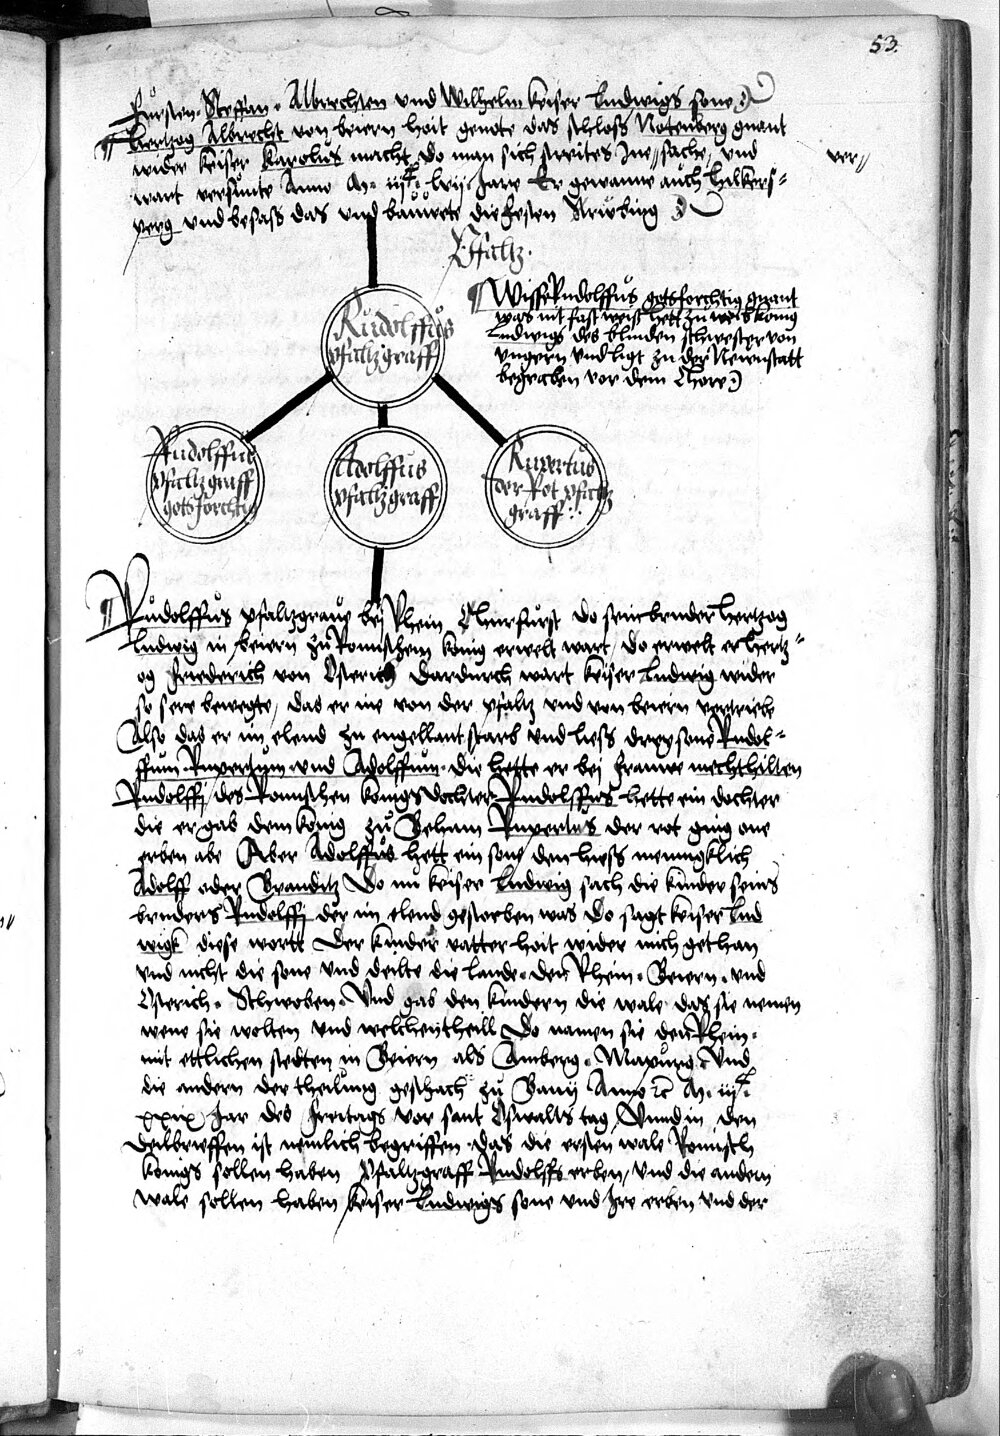 53.
fursten Steffan Albrechten und Wilhelm keiser Ludwigs sone
Hertzog Albrecht von beiern hait genote das schloss Natenberg gnant
wider keiser Karolus macht do man sich streites sache und
ver
wart versunte Anno M iiiC lvij Jare Er gewanne auch Hilkers=
perg und besass das und bauwete die festen
Pfaltz.
Rudolffus
pfaltzgraff
Wisse Rudolffus gotsforchtig gnant
was nit fast weiss hett zu weib konig
Ludwigs des blinden schwester von
ungern und ligt zu der Newnstatt
begraben vor dem Chore
Rudolffus
pfaltzgraff
gotsforchtig
Adolffus
pfaltzgraff
Rupertus
der Rot pfaltz
graff
Rudolffus pfaltzgrave bej Rhein Churfurst Do sein bruder Hertzog
Ludwig in beiern zu Romischem konig erwelt wart do erwelt er Hertz=
og Friederich von Osterich Dardurch wart keiser Ludwig wider
so sere bewegte, das er ine von der pfaltz und von beiern vertriebe
Also das er im elend zu engellant starb und liess drey sone Rudol=
ffum Rupertum und Adolffum die hette er bej frauwe mechthilten
Rudolffj des Romischen konigs dochter Rudolffus hette ein dochter
die er gab dem konig zu Beham Rupertus der rot ging one
erben abe Aber Adolffus hett ein sone den hiess menngklich
Adolff oder Do nu keiser Ludwig sach die kinder seins
bruders Rudolffj der im elend gestorben was Do sagt keiser Lud
wigk diese wortt Der kinder vatter hait wider mich gethan
und nicht die sone und deilte die lande den Rhein Beiern und
Osterich Schwoben Und gab den kindern die wale das sie nemen
wene sie wolten und welchen theill Do namen sie den Rhein
mit ettlichen stedten in Beiern als Amberg und
die andern der theilung geschach zu Anno M iiiC
xxix Jar des freitags vor sant Oswalts tag Unnd in den
deilbrieffen ist nemlich begriffen das die ersten wale Romisch
konigs sollen haben Pfaltzgraff Rudolffs erben, und die andern
wale sollen haben keiser Ludwigs sone und Ire erben und der